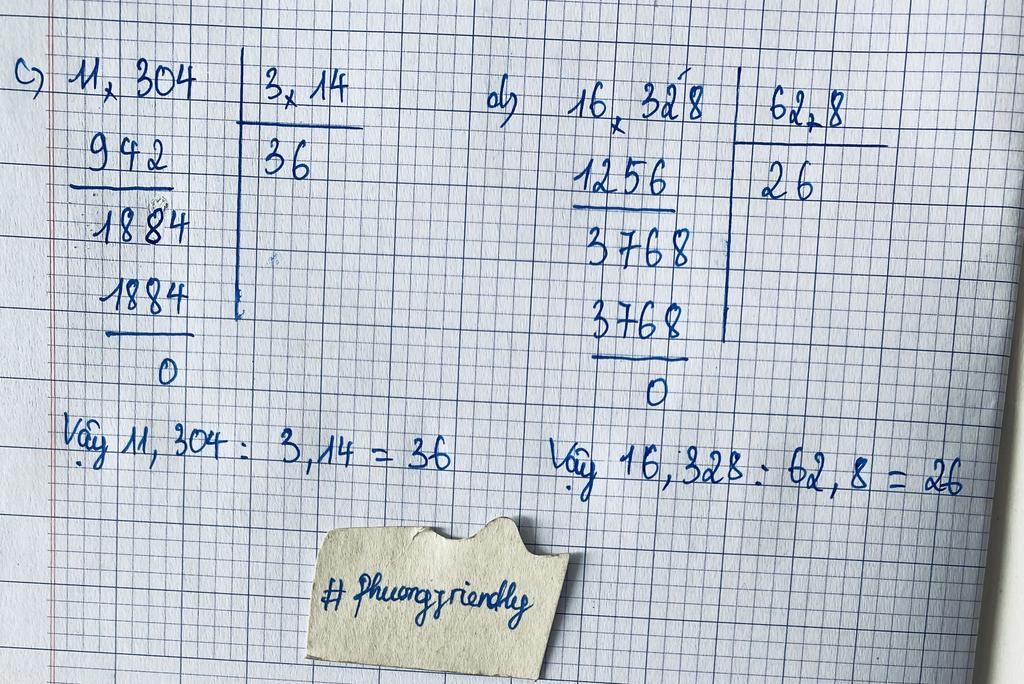 c) 11, 304 3, 14
942 36
1884
1884
0
Vậy 11, 304 : 3, 14 = 36
d) 16, 328 62, 8
1256 26
3768
3768
0
Vậy 16, 328 : 62, 8 = 26
# Phuongfriendly